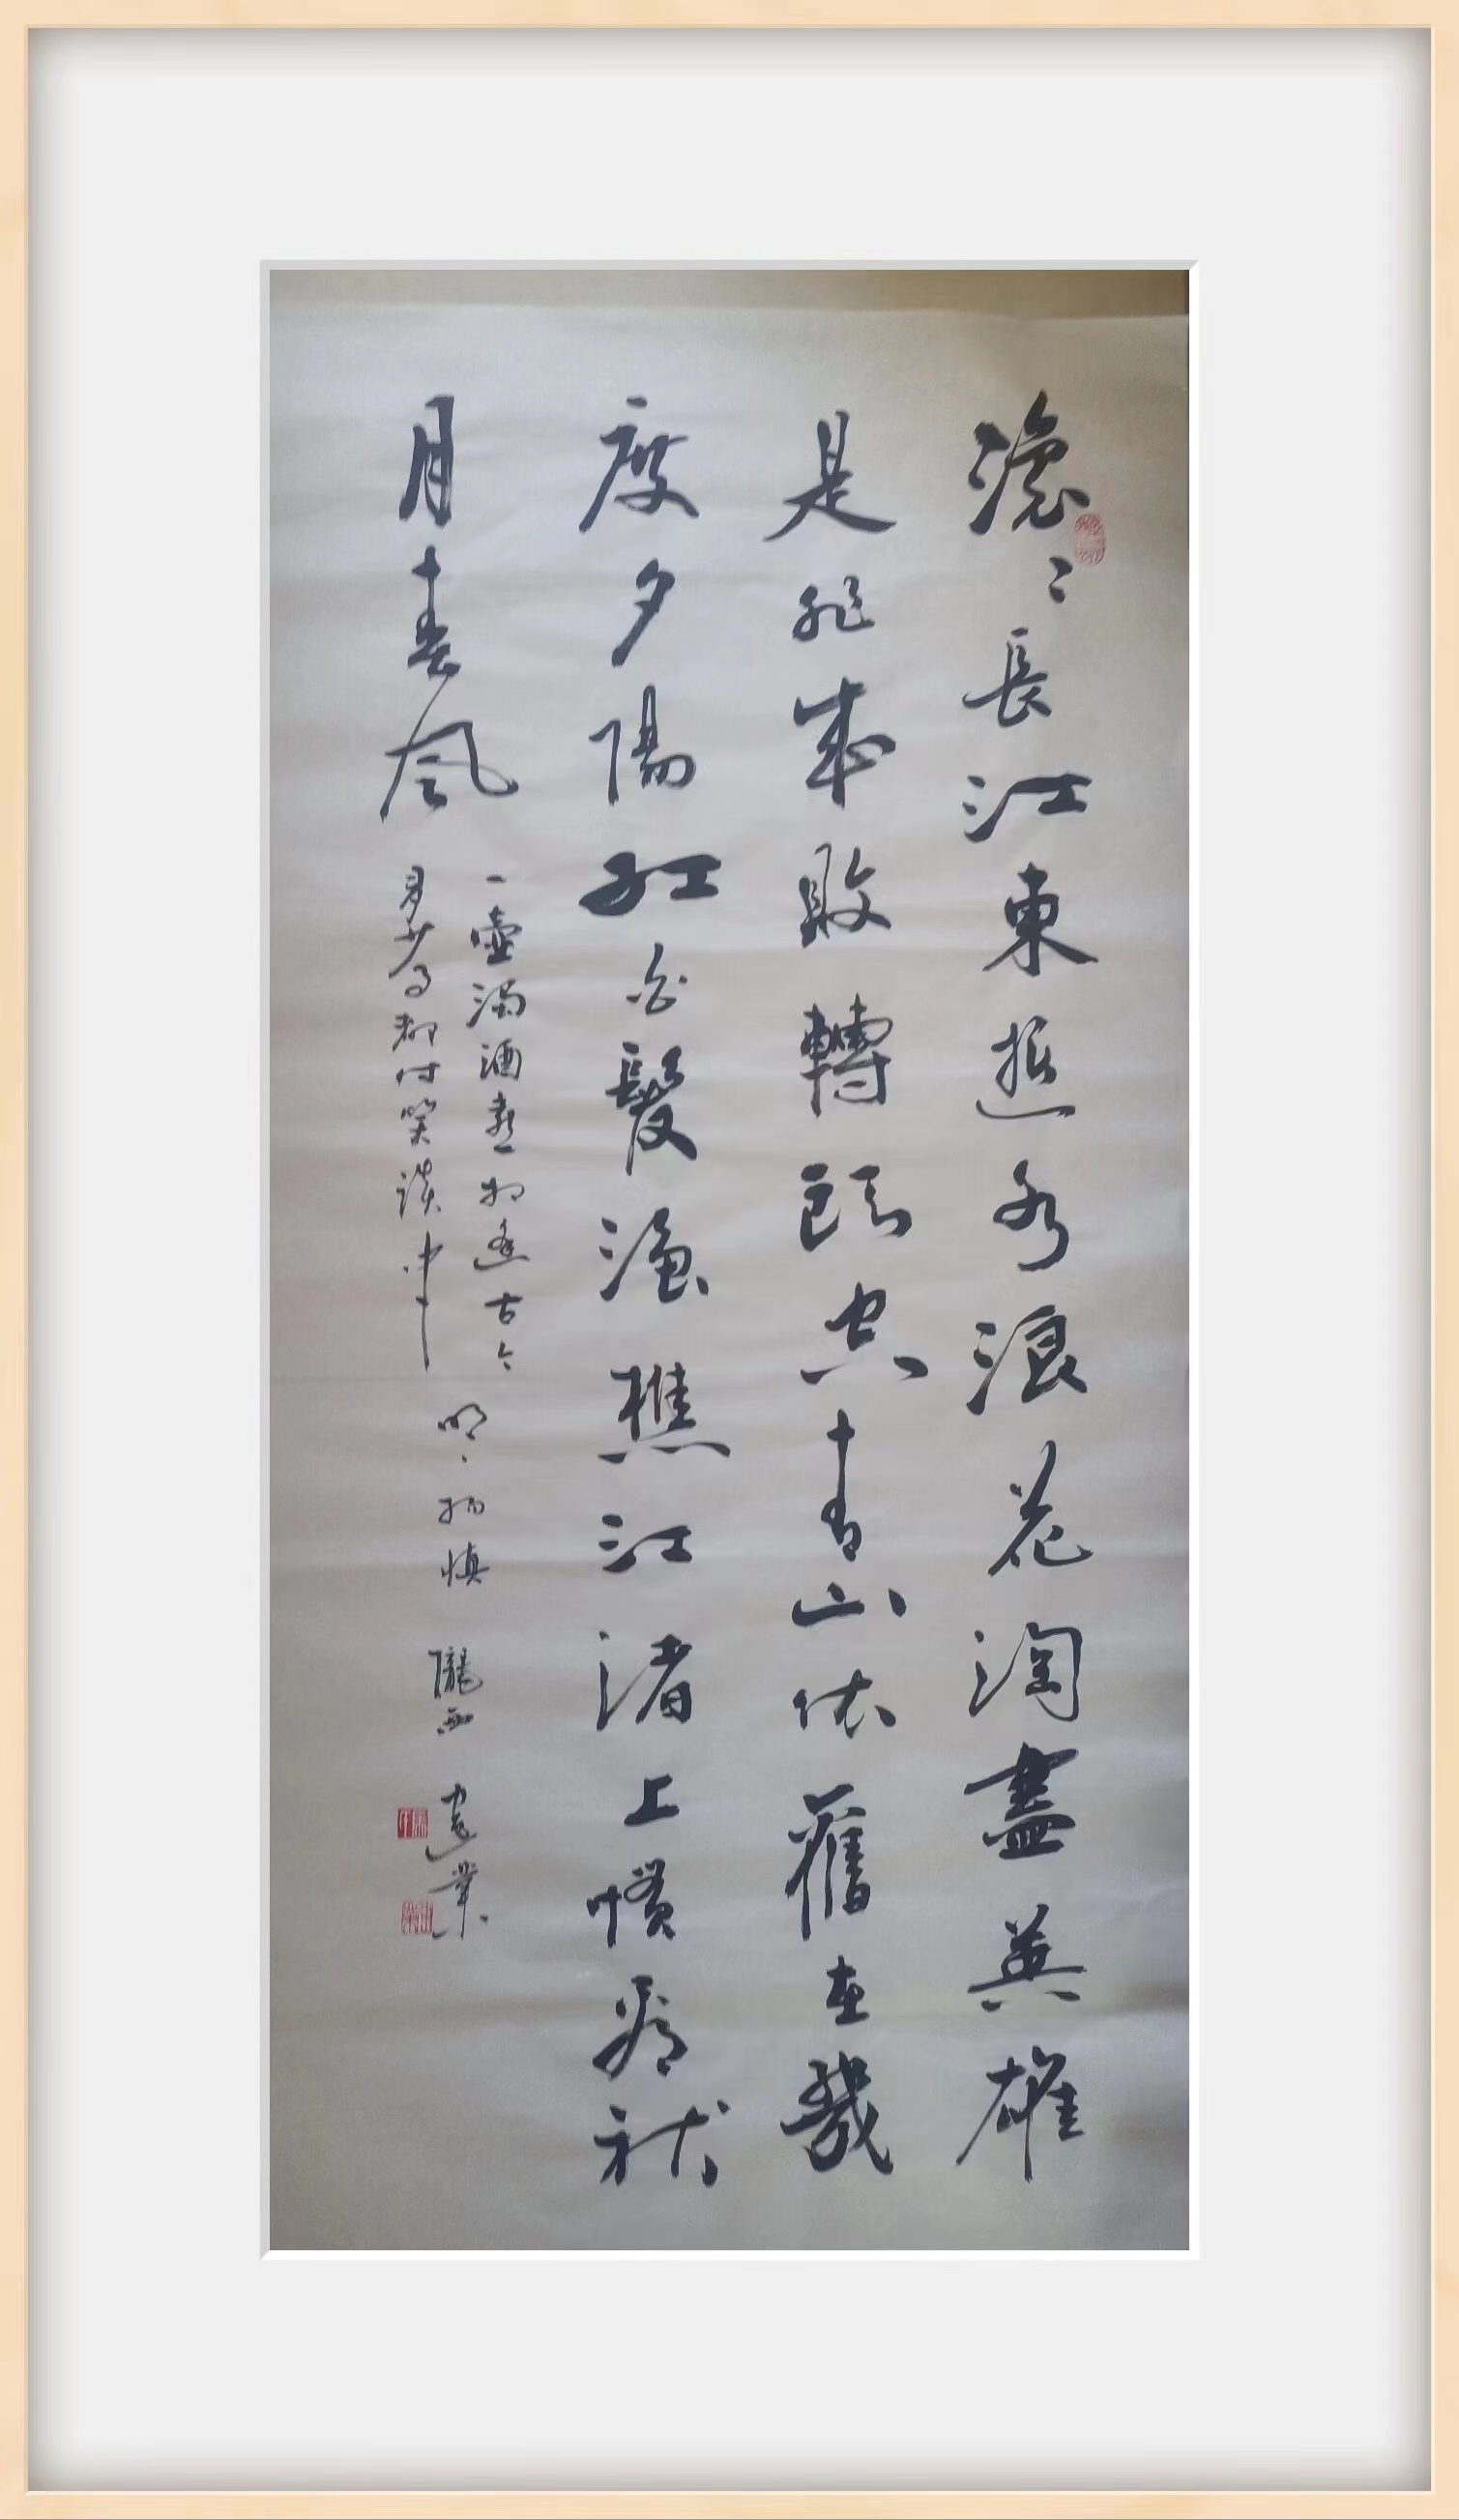 滾〻長江東逝水浪花淘盡英雄
是非成敗轉頭空青山依舊在幾
度夕陽紅白髮漁樵江渚上慣看秋
月春風
一壺濁酒喜相逢古今
多少事都付笑談中
明、楊慎
隴西
建業